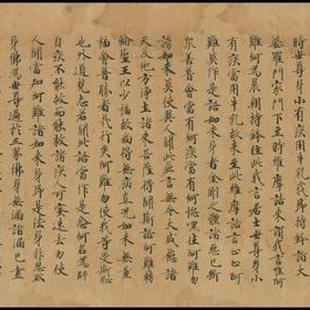 時世尊身小有疾當用牛乳我即持鉢詣大
婆羅門家門下立時維摩詰來謂我言唯阿
難何為晨朝持鉢住此我言居士世尊身小
有疾當用牛乳故來至此維摩詰言止止阿
難莫作是語如來身者金剛之體諸惡已斷
衆善普會當有何疾當有何惱默往阿難勿
謗如來莫使異人聞此麁言無令大威德諸
天及他方淨土諸來菩薩得聞斯語阿難轉
輪聖王以少福故尚得無病豈況如來無量
福會普勝者哉行矣阿難勿使我等受斯恥
也外道梵志若聞此語當作是念何名為師
自疾不能救而能救諸疾人可密速去勿使
人聞當知阿難諸如來身即是法身非思欲
身佛為世尊過於三界佛身無漏諸漏已盡